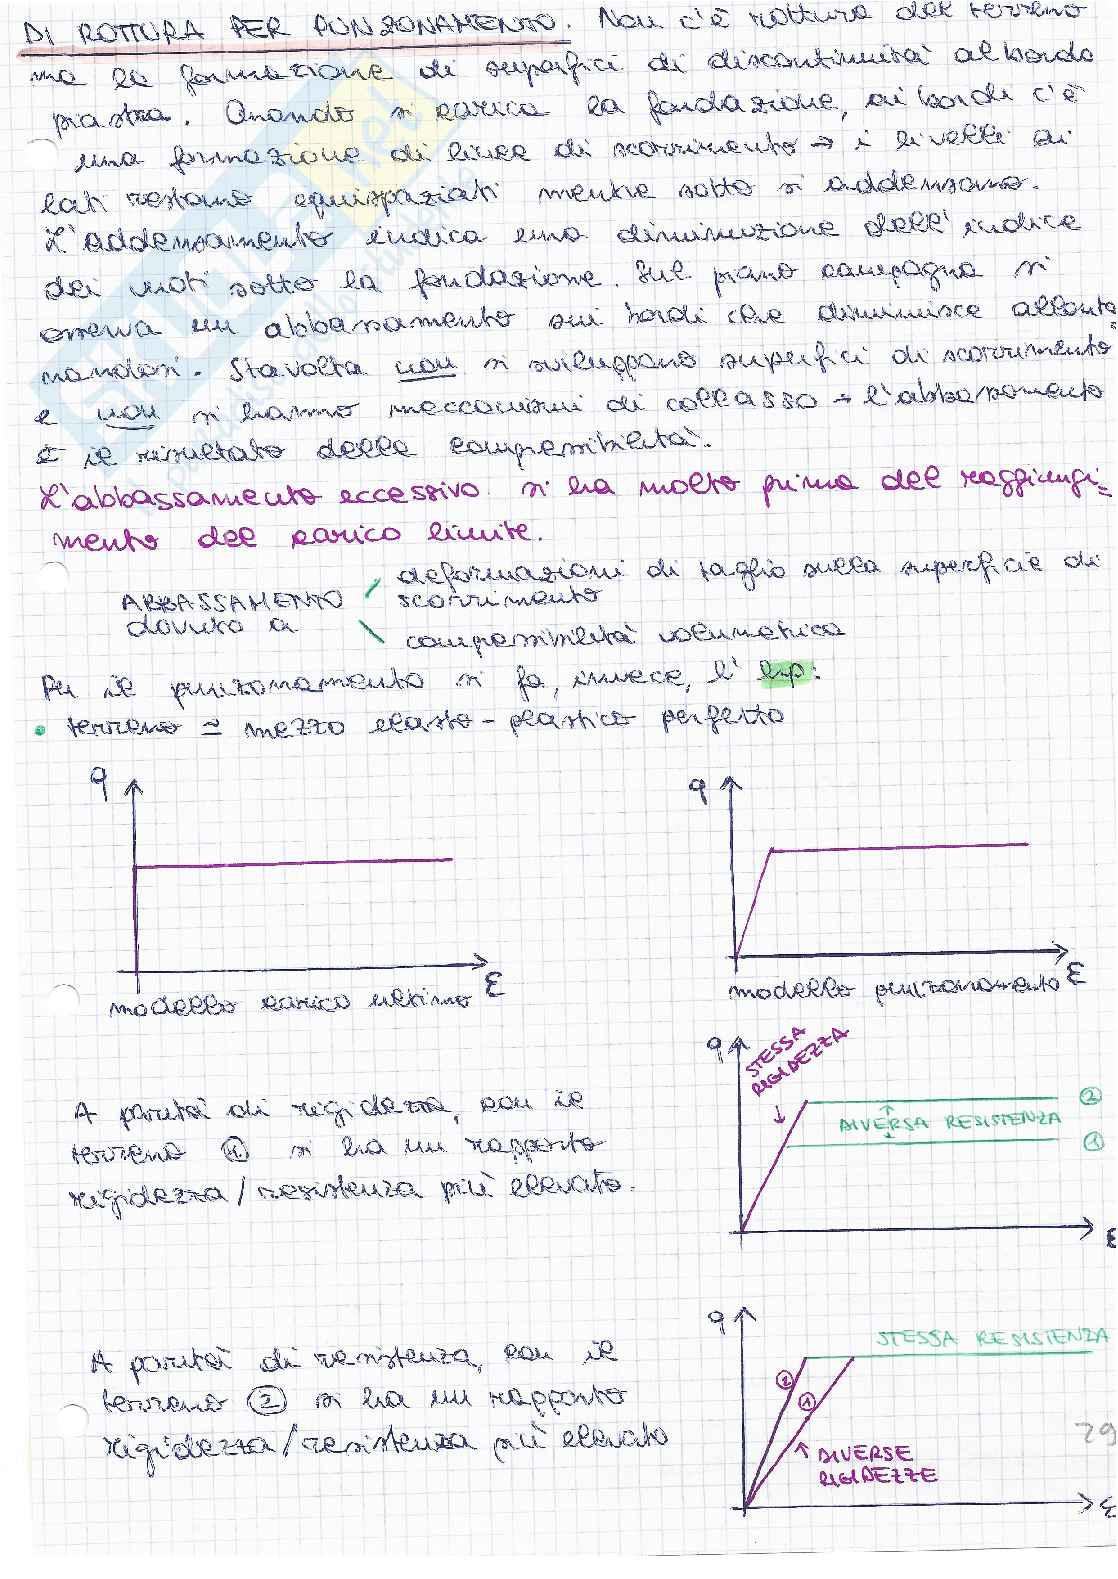 DI ROTTURA PER PUNZONAMENTO. Non c'è rottura del terreno
ma la formazione di superfici di discontinuità al bordo
piastra. Quando si carica la fondazione, ai bordi c'è
una formazione di linee di scorrimento → i livelli ai
lati restano equispaziati mentre sotto si addensano.
L'addensamento indica una diminuzione dell'indice
dei vuoti sotto la fondazione. Sul piano campagna si
osserva un abbassamento sui bordi che diminuisce allonta
nandosi. Stavolta non si sviluppano superfici di scorrimento
e non si hanno meccanismi di collasso → l'abbassamento
è il risultato della compressibilità.
L'abbassamento eccessivo si ha molto prima del raggiungi=
mento del carico limite.
ABBASSAMENTO
dovuto a
deformazioni di taglio sulla superficie di
scorrimento
compressibilità volumetrica
Per il punzonamento si fa, invece, l' hp:
• terreno ≃ mezzo elasto-plastico perfetto
q
ε
modello carico ultimo
q
ε
modello punzonamento
A parità di rigidezza, con il
terreno ① si ha un rapporto
rigidezza/resistenza più elevato.
q
STESSA
RIGIDEZZA
②
DIVERSA RESISTENZA
①
ε
A parità di resistenza, con il
terreno ② si ha un rapporto
rigidezza/resistenza più elevato
q
STESSA RESISTENZA
②
①
DIVERSE
RIGIDEZZE
ε
29